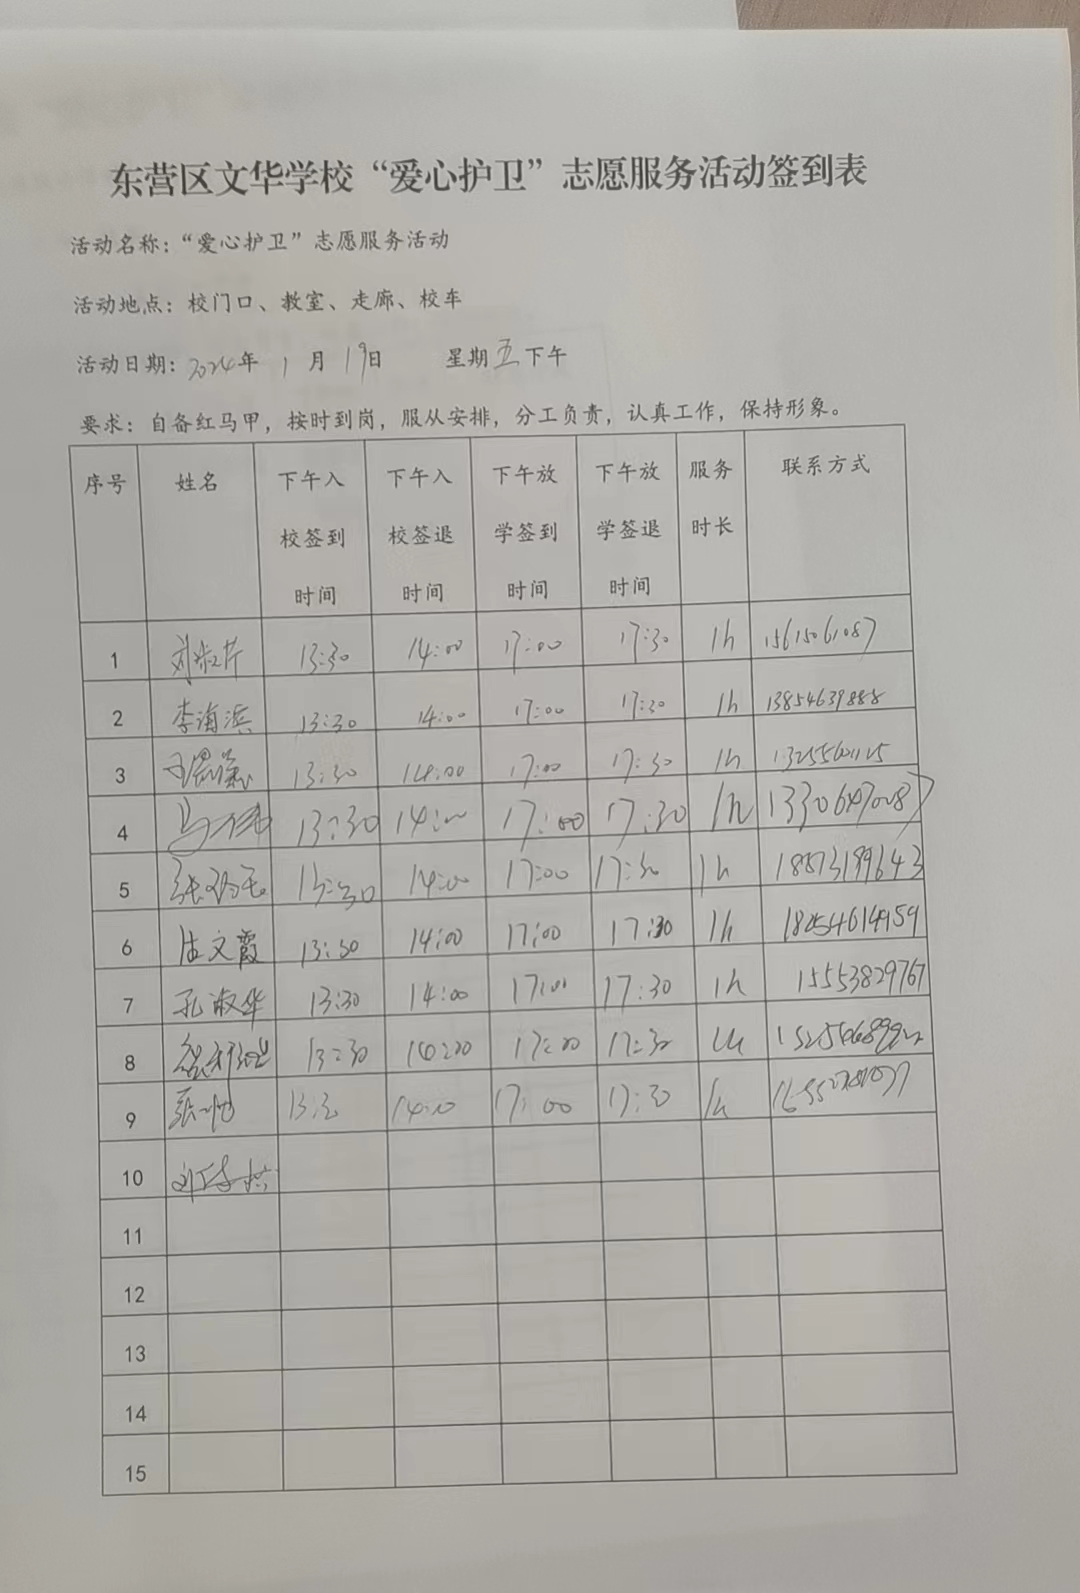 东营区文华学校“爱心护卫”志愿服务活动签到表
活动名称：“爱心护卫”志愿服务活动
活动地点：校门口、教室、走廊、校车
活动日期：2024年 1 月 19日 星期五下午
要求：自备红马甲，按时到岗，服从安排，分工负责，认真工作，保持形象。
序号 姓名 下午入校签到时间 下午入校签退时间 下午放学签到时间 下午放学签退时间 服务时长 联系方式
1 刘淑芹 13:30 14:00 17:00 17:30 1h 15615061087
2 李海滨 13:30 14:00 17:00 17:30 1h 13854639888
3 13:30 14:00 17:00 17:30 1h
4 13:30 14:00 17:00 17:30 1h 13306470087
5 13:30 14:00 17:00 17:30 1h 18873199643
6 文霞 13:30 14:00 17:00 17:30 1h 18254614959
7 孔淑华 13:30 14:00 17:00 17:30 1h 15553829767
8 13:30 14:00 17:00 17:30 1h
9 17:00 1h
10
11
12
13
14
15